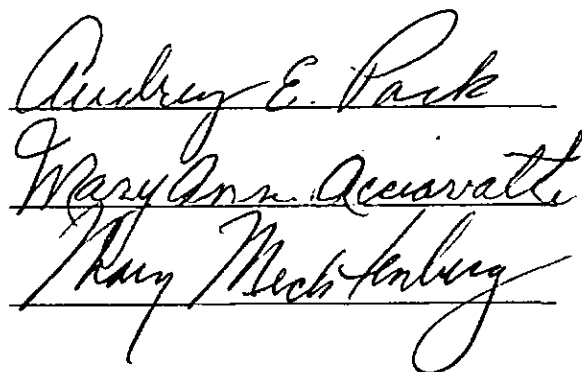 Audrey E. Park
Mary Ann Acciavatti
Mary Mecklenburg